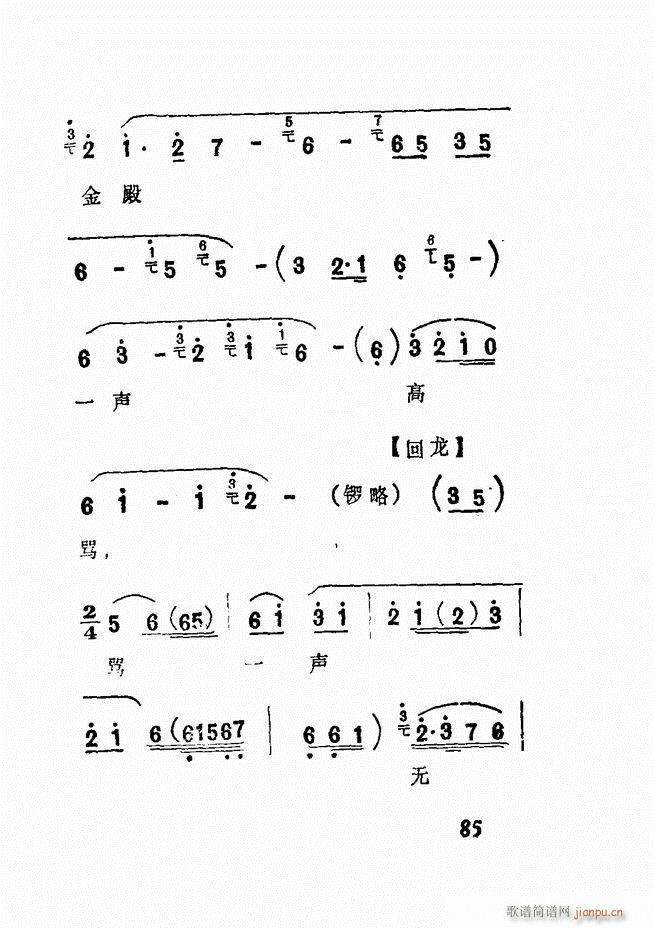 3 2 1· 2 7 - 5 6 - 7 65 35
金殿
6 - 1 5 6 5 - (3 2·1 6 6 5 -)
6 3 - 3 2 3 1 1 6 - (6) 3 2 1 0
一声 高
【回龙】
6 1 - 1 3 2 - (锣略) (3 5)
骂,
2/4 5 6 (65) | 6 1 3 1 | 2 1 (2) 3 |
骂 一 声
2 1 6 (61567 | 6 6 1) 3 2·3 7 6 |
无
85
歌谱简谱网 jianpu.cn